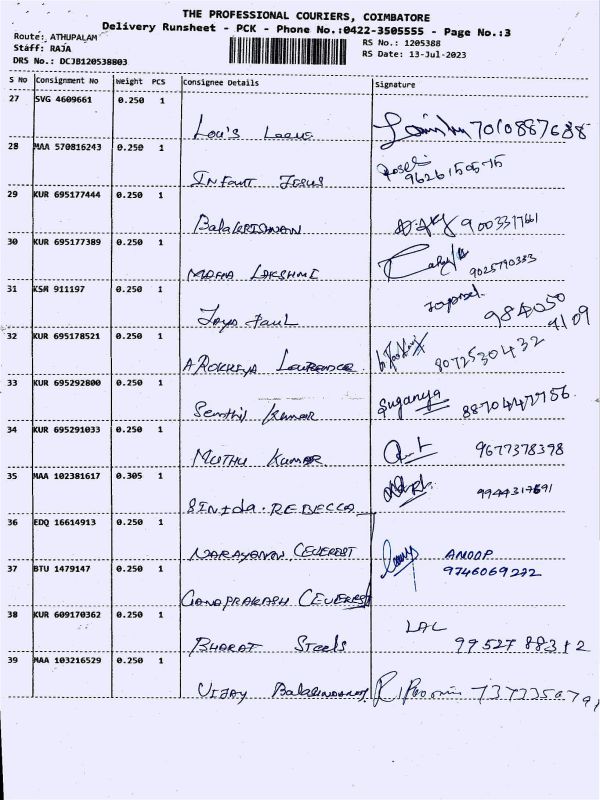 THE PROFESSIONAL COURIERS, COIMBATORE
Delivery Runsheet - PCK - Phone No.:0422-3505555 - Page No.:3
Route: ATHUPALAM
Staff: RAJA
DRS No.: DCJB120538803
RS No.: 1205388
RS Date: 13-Jul-2023
S No Consignment No Weight PCS Consignee Details Signature
27 SVG 4609661 0.250 1
7010887688
28 MAA 570816243 0.250 1
INFANT JESUS
9626150575
29 KUR 695177444 0.250 1
BalaKRISHNAN 9003317661
30 KUR 695177389 0.250 1
MAHA LAKSHMI 9025790333
31 KSR 911197 0.250 1
Jaya Paul 984050
9109
32 KUR 695178521 0.250 1
8072530432
33 KUR 695292800 0.250 1
Senthil Kumar Suganya 8870447756
34 KUR 695291033 0.250 1
MUTHU KUMAR 9677378398
35 MAA 102381617 0.305 1
REBECCA 9944317691
36 EDQ 16614913 0.250 1
NARAYANAN (EVEREST ANOOP
9746069272
37 BTU 1479147 0.250 1
GANAPRAKASH (EVEREST
38 KUR 609170362 0.250 1
LAL
BHARAT Steels 9952788312
39 MAA 103216529 0.250 1
VIJAY